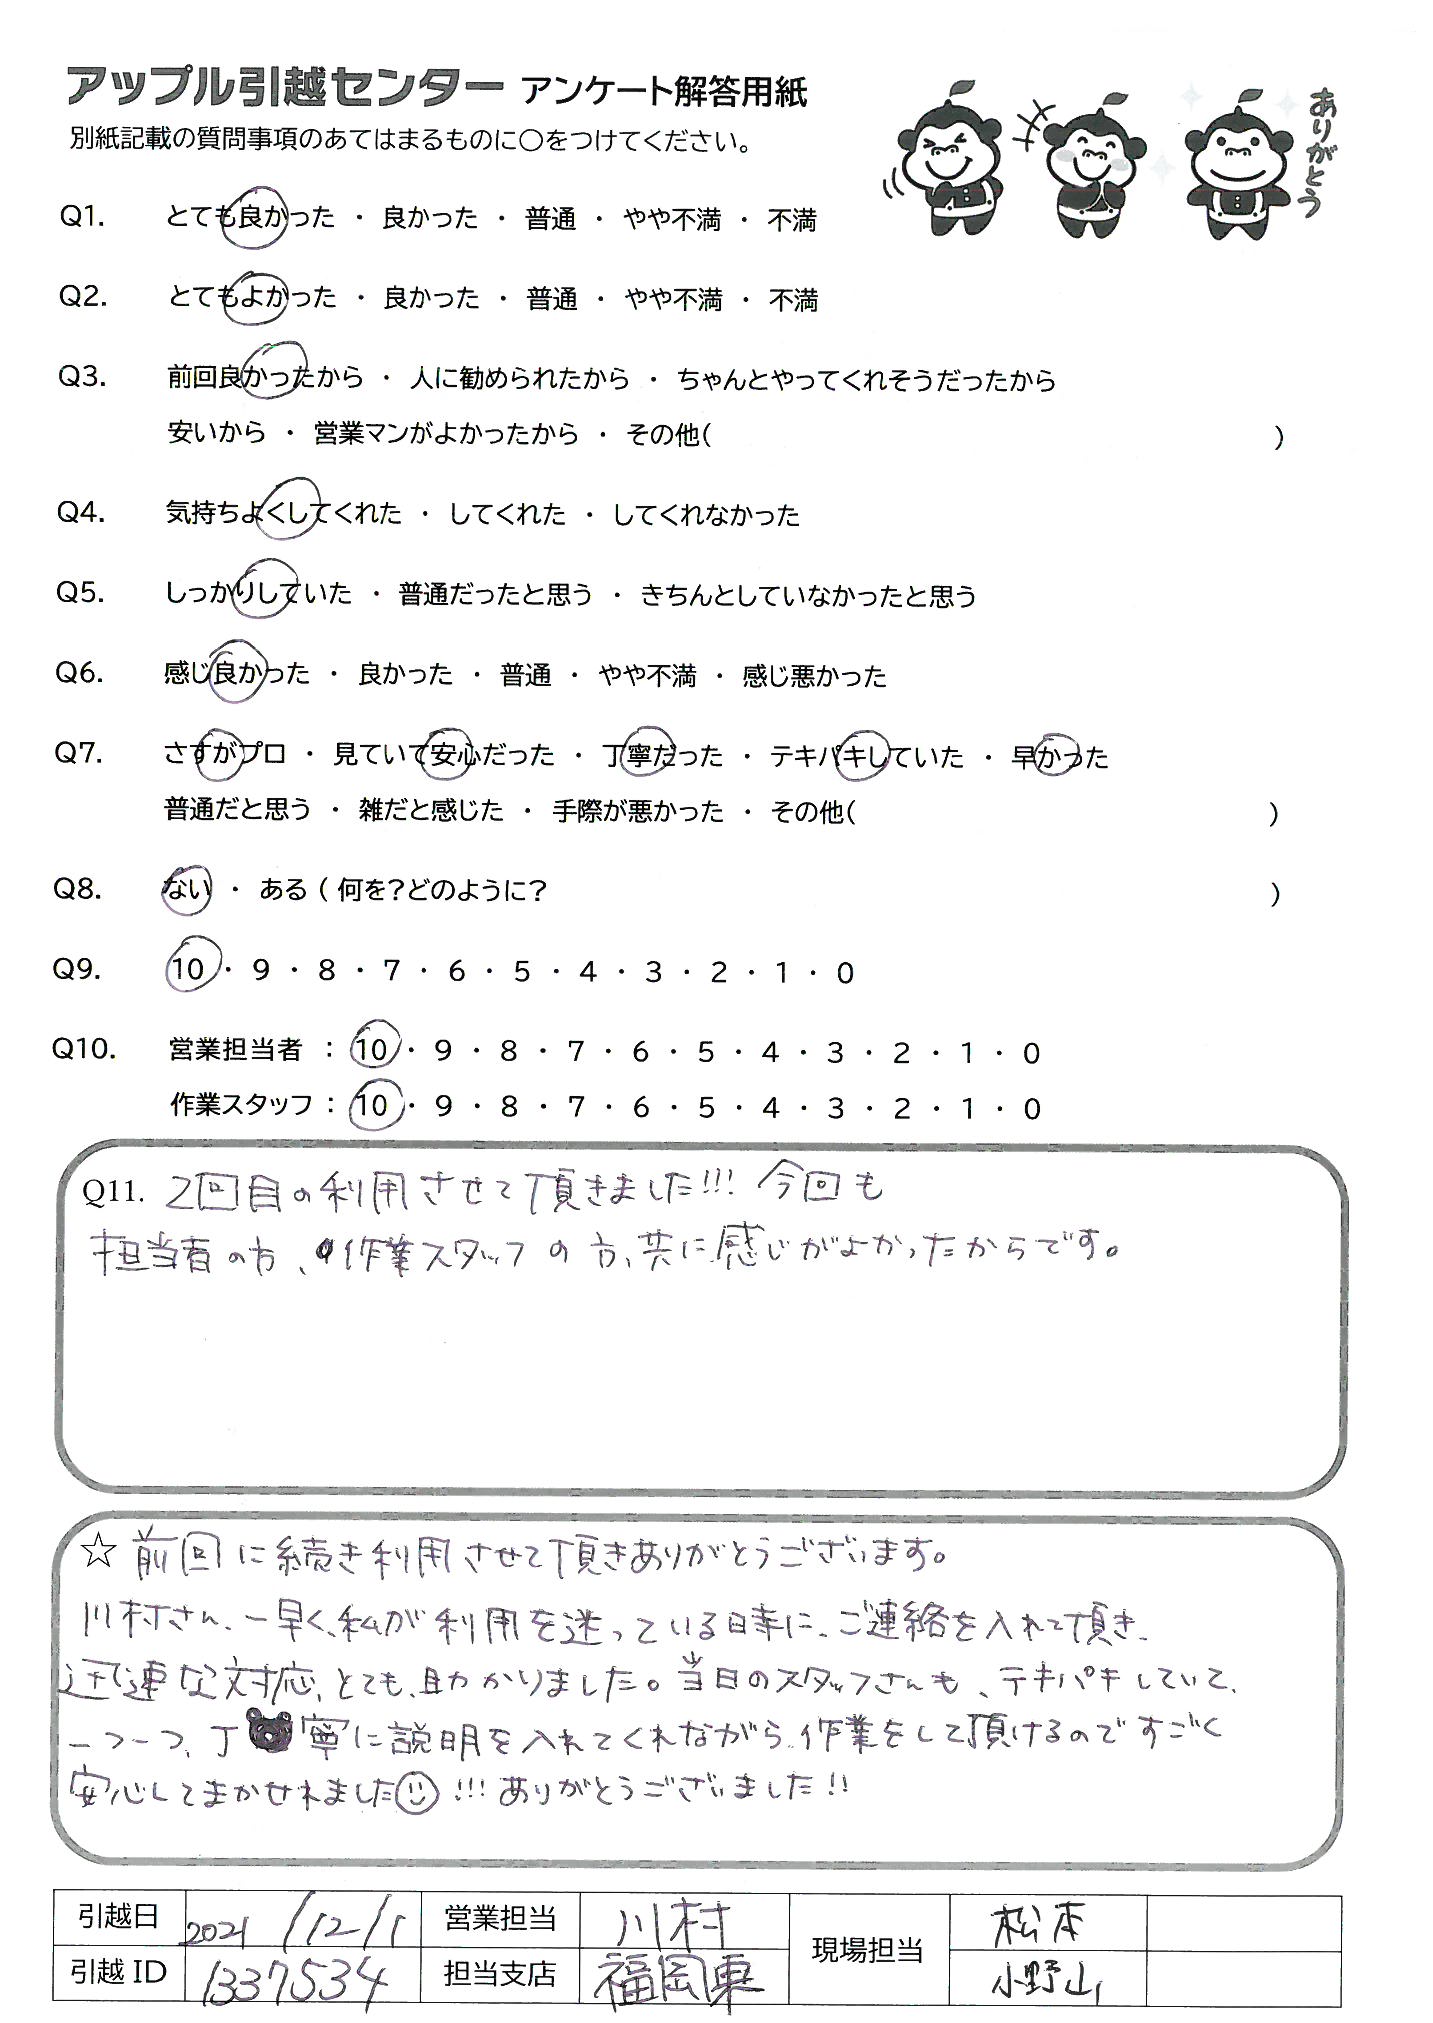 アップル引越センター アンケート解答用紙
別紙記載の質問事項のあてはまるものに○をつけてください。
ありがとう
Q1. とても良かった ・ 良かった ・ 普通 ・ やや不満 ・ 不満
Q2. とてもよかった ・ 良かった ・ 普通 ・ やや不満 ・ 不満
Q3. 前回良かったから ・ 人に勧められたから ・ ちゃんとやってくれそうだったから
安いから ・ 営業マンがよかったから ・ その他( )
Q4. 気持ちよくしてくれた ・ してくれた ・ してくれなかった
Q5. しっかりしていた ・ 普通だったと思う ・ きちんとしていなかったと思う
Q6. 感じ良かった ・ 良かった ・ 普通 ・ やや不満 ・ 感じ悪かった
Q7. さすがプロ ・ 見ていて安心だった ・ 丁寧だった ・ テキパキしていた ・ 早かった
普通だと思う ・ 雑だと感じた ・ 手際が悪かった ・ その他( )
Q8. ない ・ ある ( 何を?どのように? )
Q9. 10 ・ 9 ・ 8 ・ 7 ・ 6 ・ 5 ・ 4 ・ 3 ・ 2 ・ 1 ・ 0
Q10. 営業担当者 : 10 ・ 9 ・ 8 ・ 7 ・ 6 ・ 5 ・ 4 ・ 3 ・ 2 ・ 1 ・ 0
作業スタッフ : 10 ・ 9 ・ 8 ・ 7 ・ 6 ・ 5 ・ 4 ・ 3 ・ 2 ・ 1 ・ 0
Q11. 2回目の利用させて頂きました!!! 今回も
担当者の方、作業スタッフの方、共に感じがよかったからです。
☆ 前回に続き利用させて頂きありがとうございます。
川村さん、一早く、私が利用を迷っている時に、ご連絡を入れて頂き、
迅速な対応、とても、助かりました。当日のスタッフさんも、テキパキしていて、
一つ一つ、丁寧に説明を入れてくれながら、作業をして頂けるのですごく
安心してまかせれました!!! ありがとうございました!!
引越日 2021/12/1 営業担当 川村 現場担当 松本
引越ID 1337534 担当支店 福岡東 小野山